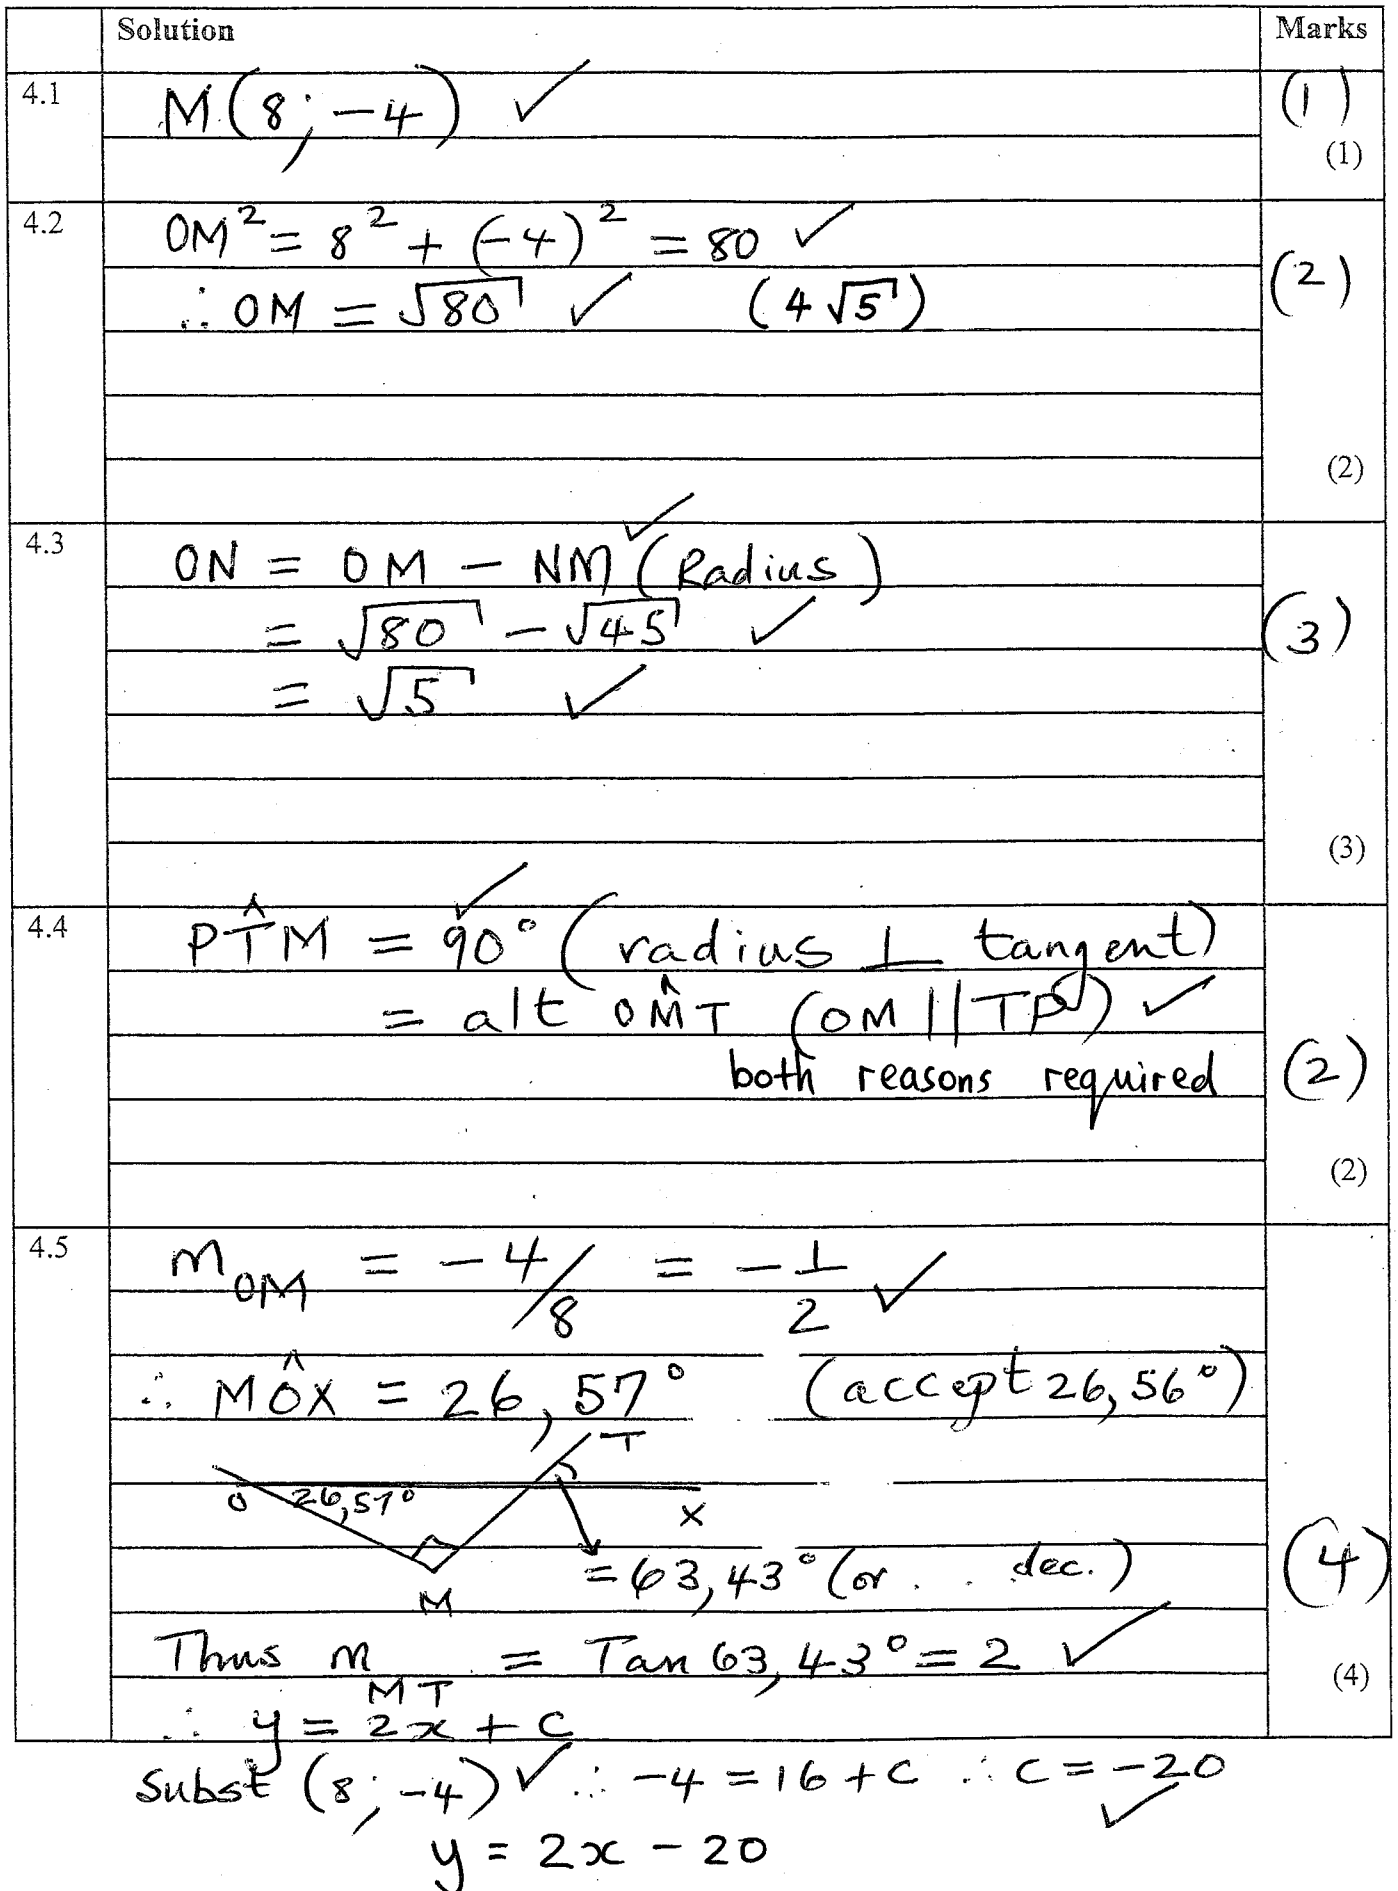 Solution Marks
4.1 M(8; -4) ✓ (1)
(1)
4.2 OM² = 8² + (-4)² = 80 ✓
∴ OM = √80 ✓ (4√5) (2)
(2)
4.3 ON = OM - NM ✓ (Radius)
= √80 - √45 ✓ (3)
= √5 ✓
(3)
4.4 PT̂M = 90° ✓ (radius ⊥ tangent)
= alt OM̂T (OM || TP) ✓
both reasons required (2)
(2)
4.5 m OM = -4/8 = -1/2 ✓
∴ MÔX = 26,57° (accept 26,56°)
T
O 26,57° X
= 63,43° (or . . dec.) (4)
M
Thus m MT = Tan 63,43° = 2 ✓ (4)
∴ y = 2x + c
Subst (8; -4) ✓ ∴ -4 = 16 + c ∴ c = -20 ✓
y = 2x - 20